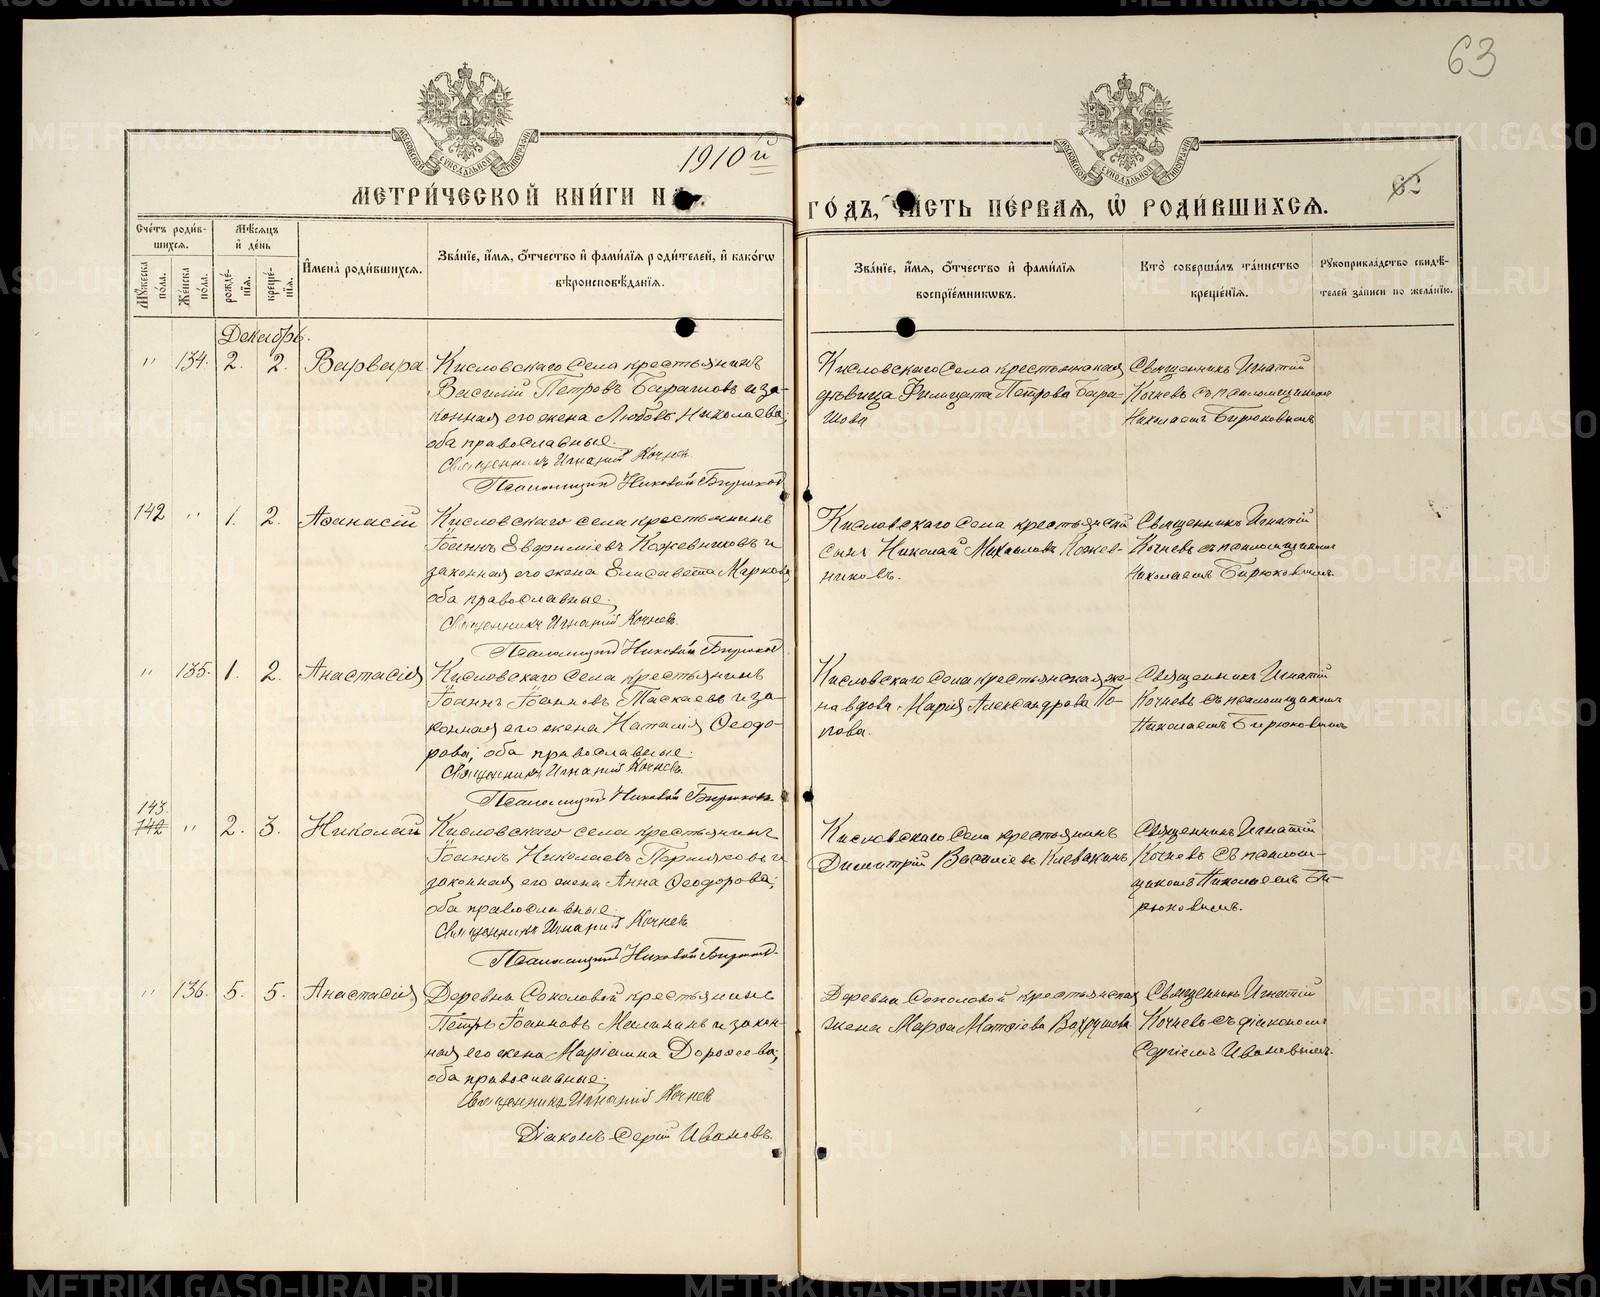 63
1910й
МЕТРИ́ЧЕСКОЙ КНИ́ГИ НА
ГО́ДЪ, ЧА́СТЬ ПЕ́РВАѦ, Ѿ РОДИ́ВШИХСѦ.
Сче́тъ роди́в-
шихся.
Мѣ́сяцъ
и҆ де́нь
Мꙋ́жеска по́ла.
Же́нска по́ла.
рожде́нїя.
креще́нїя.
И҆мена̀ роди́вшихся.
Зва́нїе, и҆́мя, ѻ҆́тчество и҆ фами́лїя роди́телей, и҆ како́гѡ
вѣроисповѣ́данїя.
Зва́нїе, и҆́мя, ѻ҆́тчество и҆ фами́лїя
воспрїе́мникѡвъ.
Кто̀ соверша́лъ та́инство
креще́нїя.
Рꙋкоприкла́дство свидѣ́-
телей за́писи по жела́нїю.
Декабрь.
" 134. 2. 2. Варвара
Кисловскаго села крестьянинъ
Василий Петровъ Барашовъ и за-
конная его жена Любовь Николаева;
оба православные.
Священникъ Игнатий Кочневъ
Псаломщикъ Николай Бирюков
Кисловскаго села крестьянская
дѣвица Филицата Петрова Бара-
шова
Священникъ Игнатий
Кочневъ съ псаломщикомъ
Николаемъ Бирюковымъ
142 " 1. 2. Аѳанасій
Кисловскаго села крестьянинъ
Іоаннъ Евфиміевъ Кожевниковъ и
законная его жена Елисавета Маркова
оба православные.
Священникъ Игнатий Кочневъ
Псаломщикъ Николай Бирюков
Кисловскаго села крестьянский
сынъ Николай Михаиловъ Кожев-
никовъ.
Священникъ Игнатій
Кочневъ съ псаломщикомъ
Николаемъ Бирюковымъ.
" 135. 1. 2. Анастасія
Кисловскаго села крестьянинъ
Іоаннъ Іоанновъ Таскаевъ и за-
конная его жена Наталія Ѳеодо-
рова; оба православные.
Священникъ Игнатий Кочневъ
Псаломщикъ Николай Бирюковъ
Кисловскаго села крестьянская же-
на вдова Марія Александрова По-
пова.
Священникъ Игнатій
Кочневъ съ псаломщикомъ
Николаемъ Бирюковымъ
143.
142 " 2. 3. Николай
Кисловскаго села крестьянинъ
Іоаннъ Николаевъ Першаковъ и
законная его жена Анна Ѳеодорова;
оба православные.
Священникъ Игнатий Кочневъ
Псаломщикъ Николай Бирюков
Кисловскаго села крестьянинъ
Димитрій Василіевъ Клевакинъ
Священникъ Игнатій
Кочневъ съ псалом-
щикомъ Николаемъ Би-
рюковымъ.
" 136. 5. 5. Анастасія
Деревни Соколовой крестьянинъ
Петръ Іоанновъ Малининъ и закон-
ная его жена Маріамна Дороѳеева;
оба православные.
Священникъ Игнатий Кочнев
Діаконъ Сергій Ивановъ.
Деревни Соколовой крестьянская
жена Марѳа Матѳіева Вахрушева
Священникъ Игнатій
Кочневъ съ діакономъ
Сергіемъ Ивановымъ.
METRIKI.GASO-URAL.RU